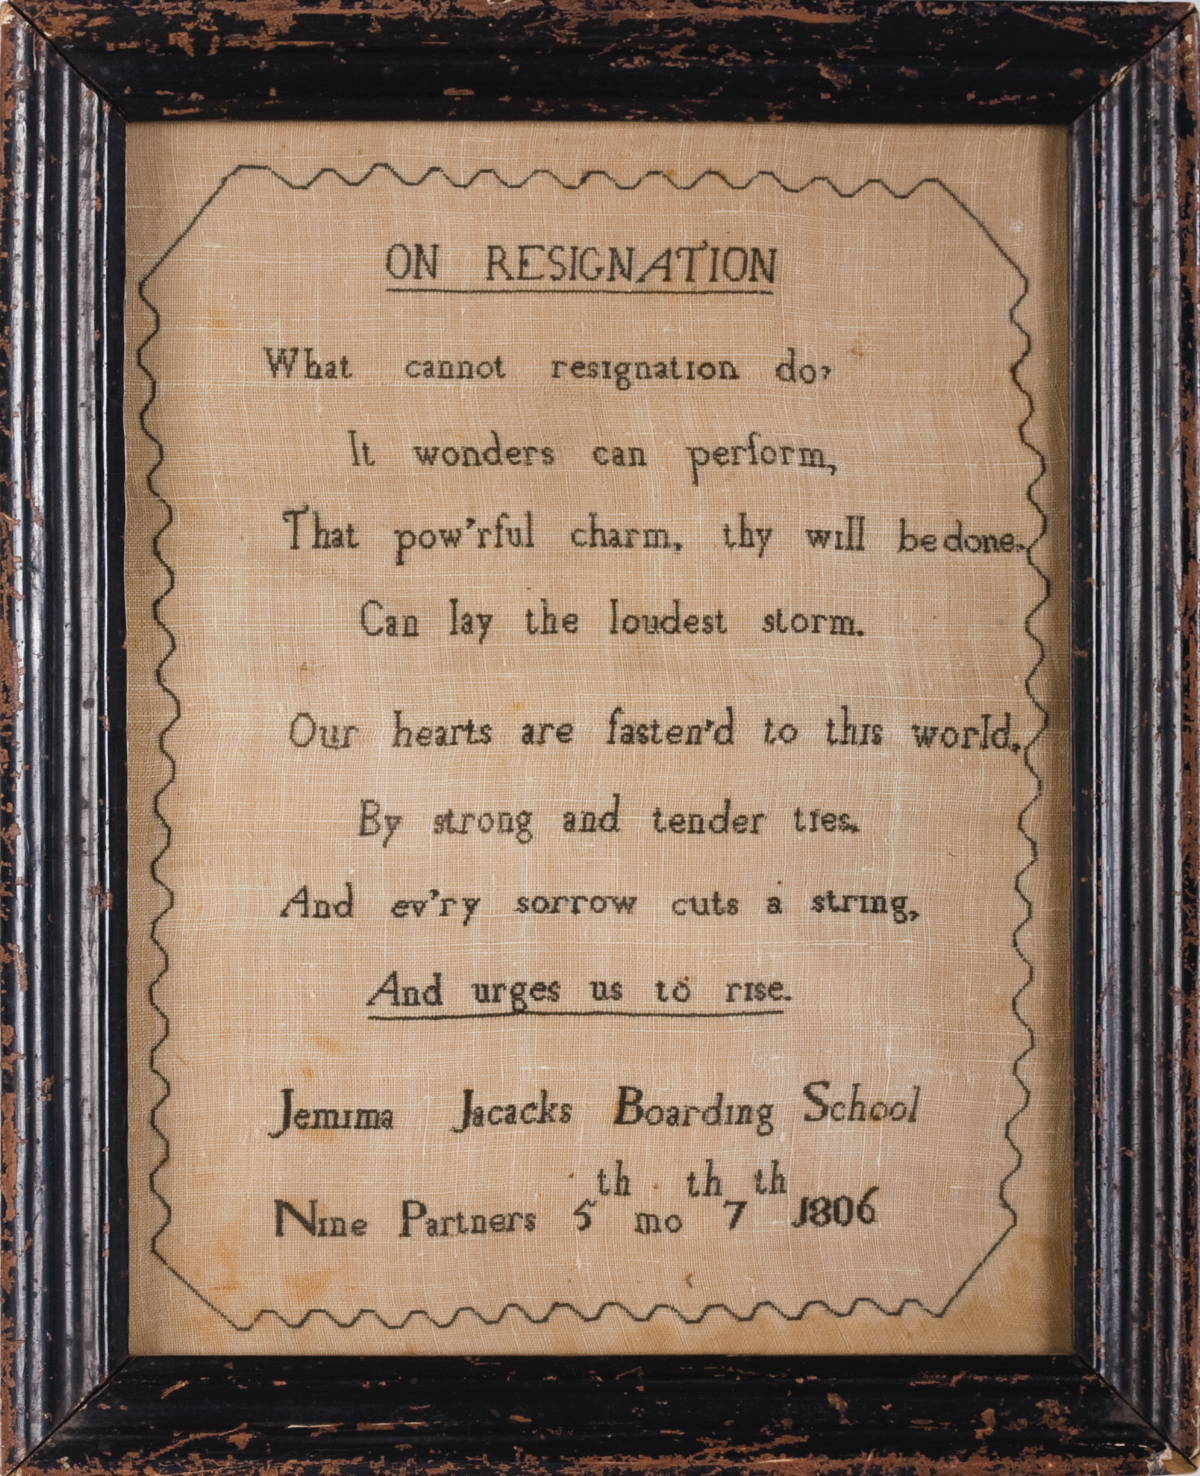 ON RESIGNATION
What cannot resignation do?
It wonders can perform,
That pow'rful charm, thy will be done.
Can lay the loudest storm.
Our hearts are fasten'd to this world,
By strong and tender ties.
And ev'ry sorrow cuts a string,
And urges us to rise.
Jemima Jacacks Boarding School
Nine Partners 5th mo 7th th 1806